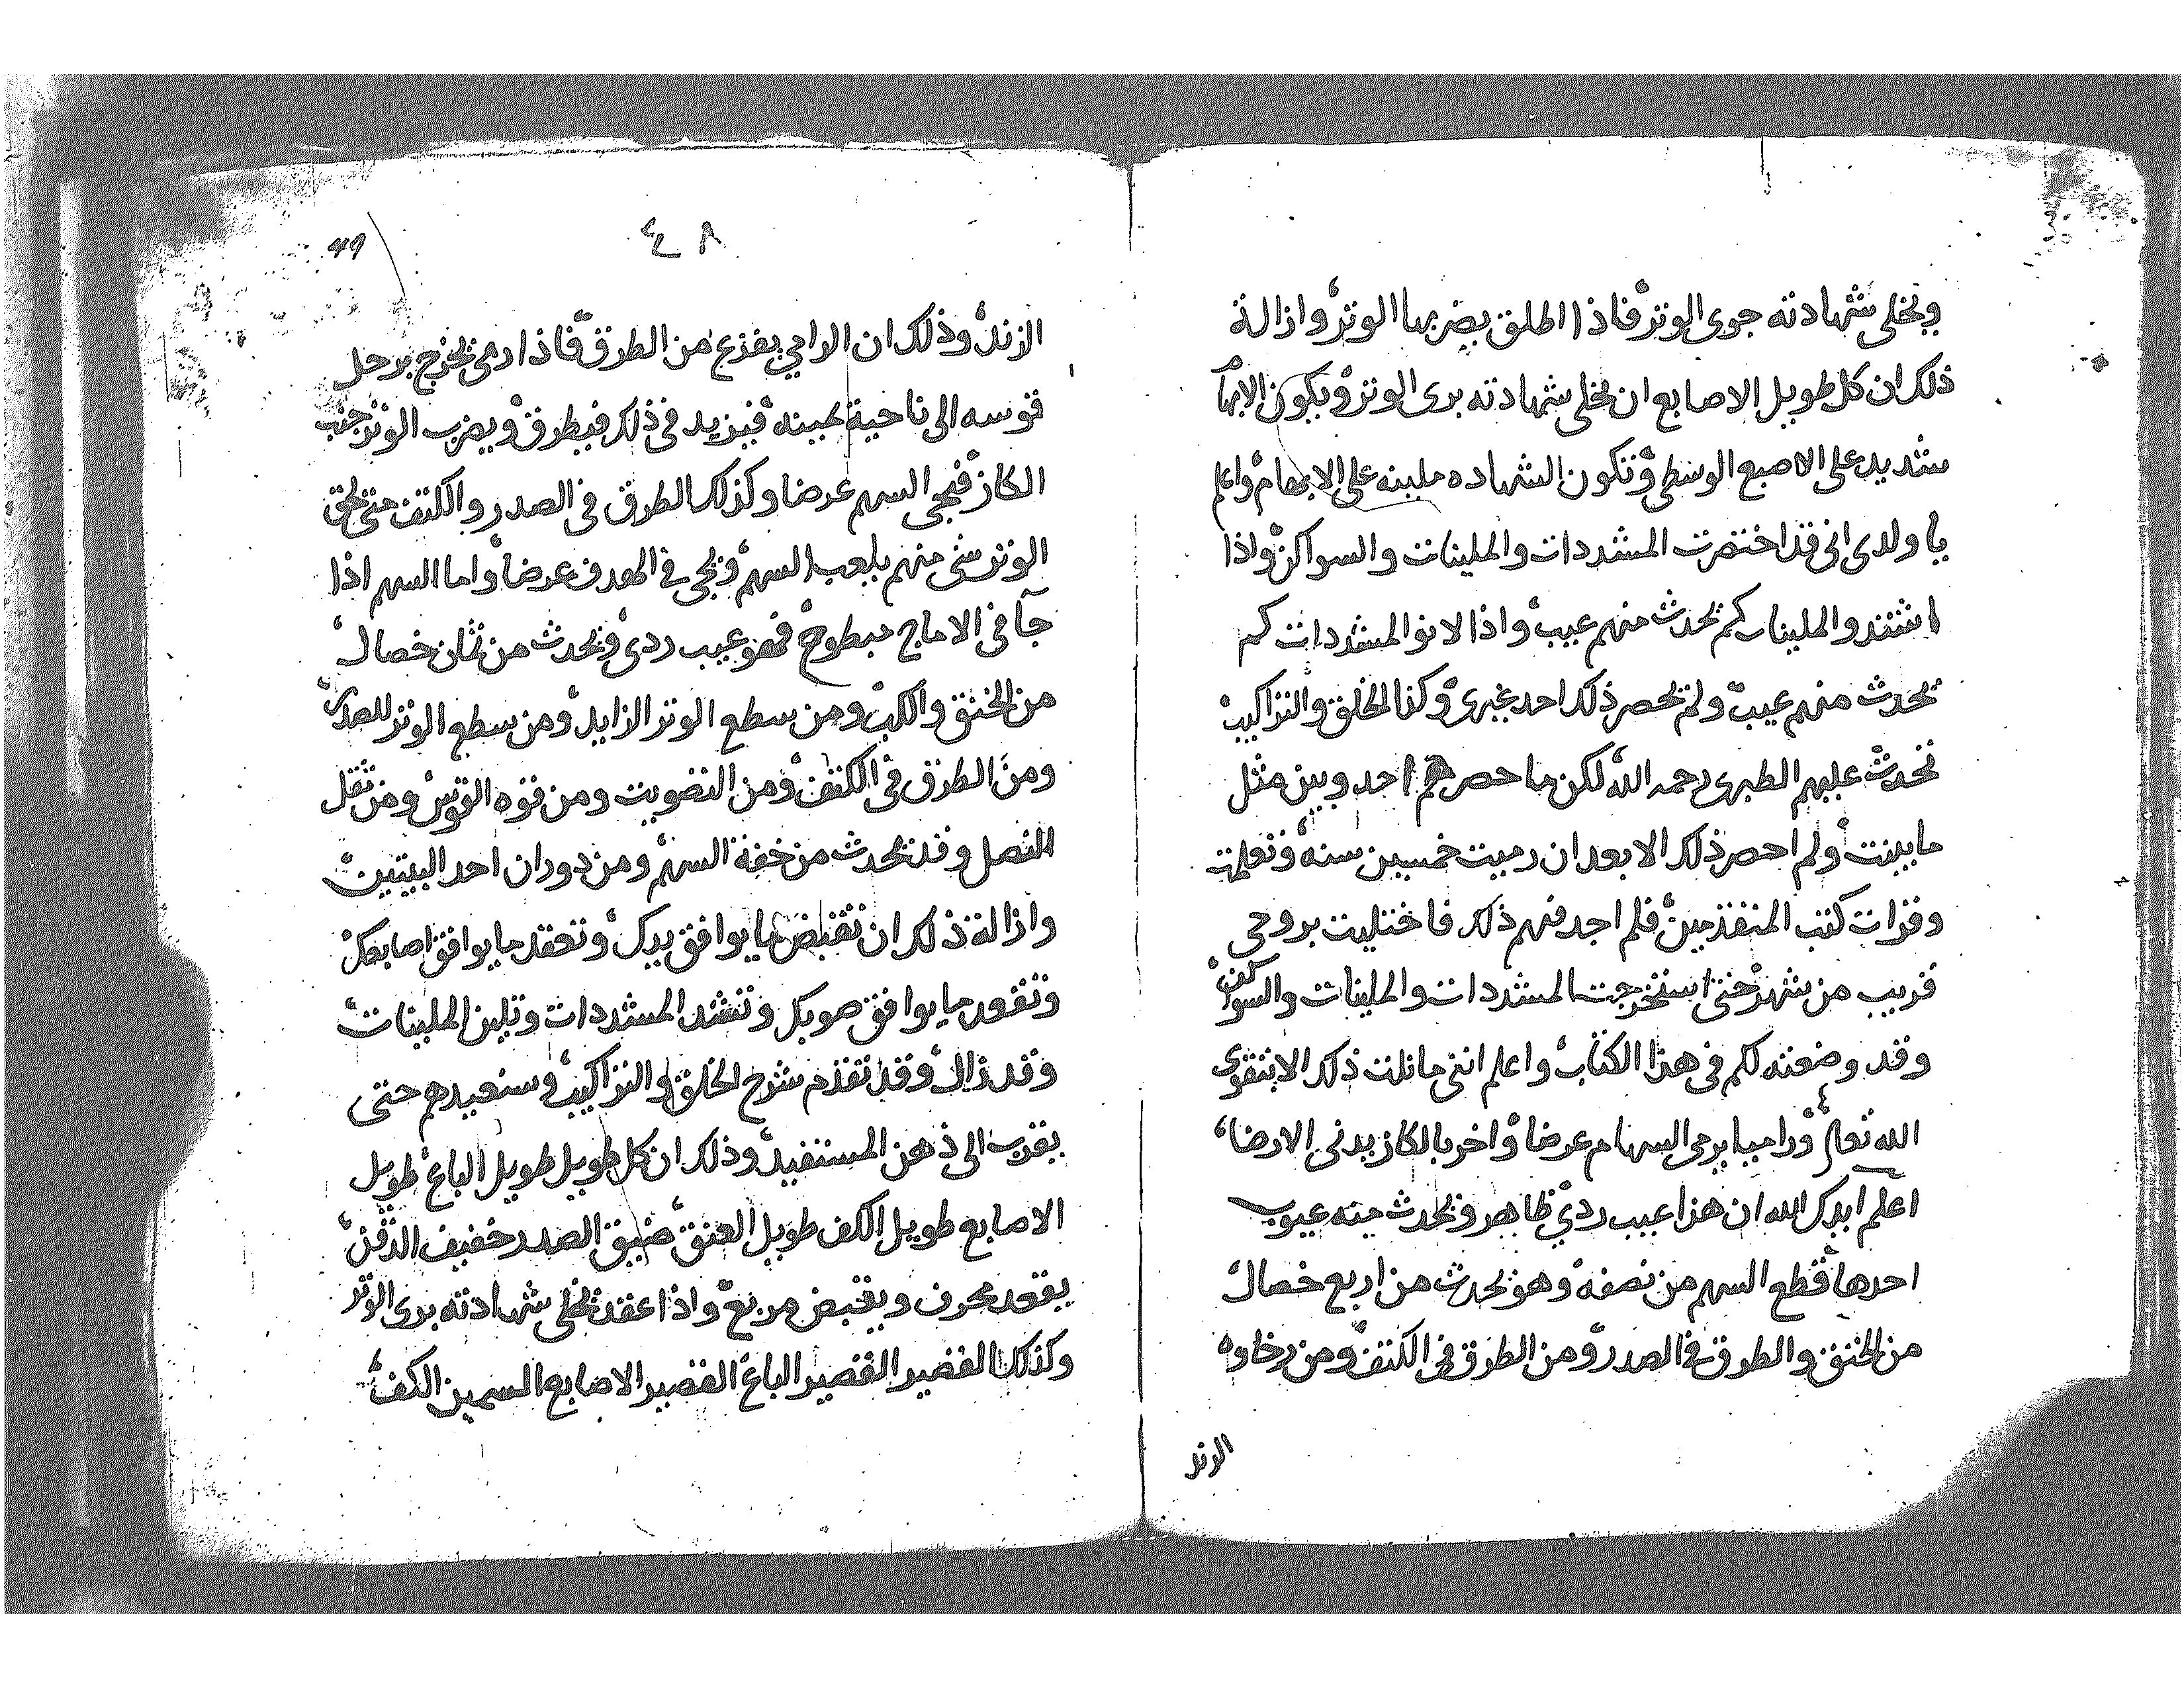 ويخلي شهادته جوي الوتر فاذا اطلق يضربها الوتر وازالة
ذلك ان كل طويل الاصابع ان يخلي شهادته برى الوتر ويكون الابهام
شديد على الاصبع الوسطى وتكون الشهاده ملينه على الابهام واعلم
يا ولدي اني قد اختصرت المشددات والملينات والسواكن واذا
اشتدو الملينات كم يحدث منهم عيب واذا لانو المشددات كم
يحدث منهم عيب ولم يحصر ذلك احد غيري وكذا الخلق والتراكيب
تحدث عليهم الطبري رحمه الله لكن ما حصرهم احد وبين مثل
ما بينت ولم احصر ذلك الا بعد ان رميت خمسين سنه وتعلمت
وقرات كتب المتقدمين فلم اجد فيهم ذلك فاختليت بروحي
قريب من شهر حتى استخرجت المشددات والملينات والسواكن
وقد وضعته لكم في هذا الكتاب واعلم انني ما نلت ذلك الا بتقوى
الله تعالى وراميا يرمي السهام عرضا واخر بالكاز يدني الارضا
اعلم ايدك الله ان هذا عيب ردي ظاهر ويحدث منه عيوب
احدها قطع السهم من نصفه وهو يحدث من اربع خصال
من الخنق والطرق في الصدر ومن الطرق في الكتف ومن رخاوه
الزند
٤٨
49
الزند وذلك ان الرامي يفزع من الطرق فاذا رمى يخرج برجل
قوسه الى ناحية يمينه فيزيد في ذلك فيطرق ويضرب الوتر جنب
الكاز فيجي السهم عرضا وكذلك الطرق في الصدر والكتف متى لحق
الوتر شي منهم يلعب السهم ويجي في الهدف عرضا واما السهم اذا
جآ في الاماج مبطوح فهو عيب ردي ويحدث من ثمان خصال
من الخنق والكب ومن سطع الوتر الزايد ومن سطع الوتر للصدر
ومن الطرق في الكتف ومن التضويت ومن قوه القوس ومن ثقل
النصل وقد يحدث من خفة السهم ومن دوران احد البيتين
وازالة ذلك ان تقبض ما يوافق يدك وتعقد ما يوافق اصابعك
وتقور ما يوافق صوبك وتشد المشددات وتلين الملينات
وقد زال وقد تقدم شرح الخلق والتراكيب وسنعيدهم حتى
يقرب الى ذهن المستفيد وذلك ان كل طويل طويل الباع طويل
الاصابع طويل الكف طويل العنق ضيق الصدر خفيف الدقن
يقعد محرف ويقبض مربع واذا عقد يخلي شهادته برى الوتر
وكذلك القصير القصير الباع القصير الاصابع السمين الكف